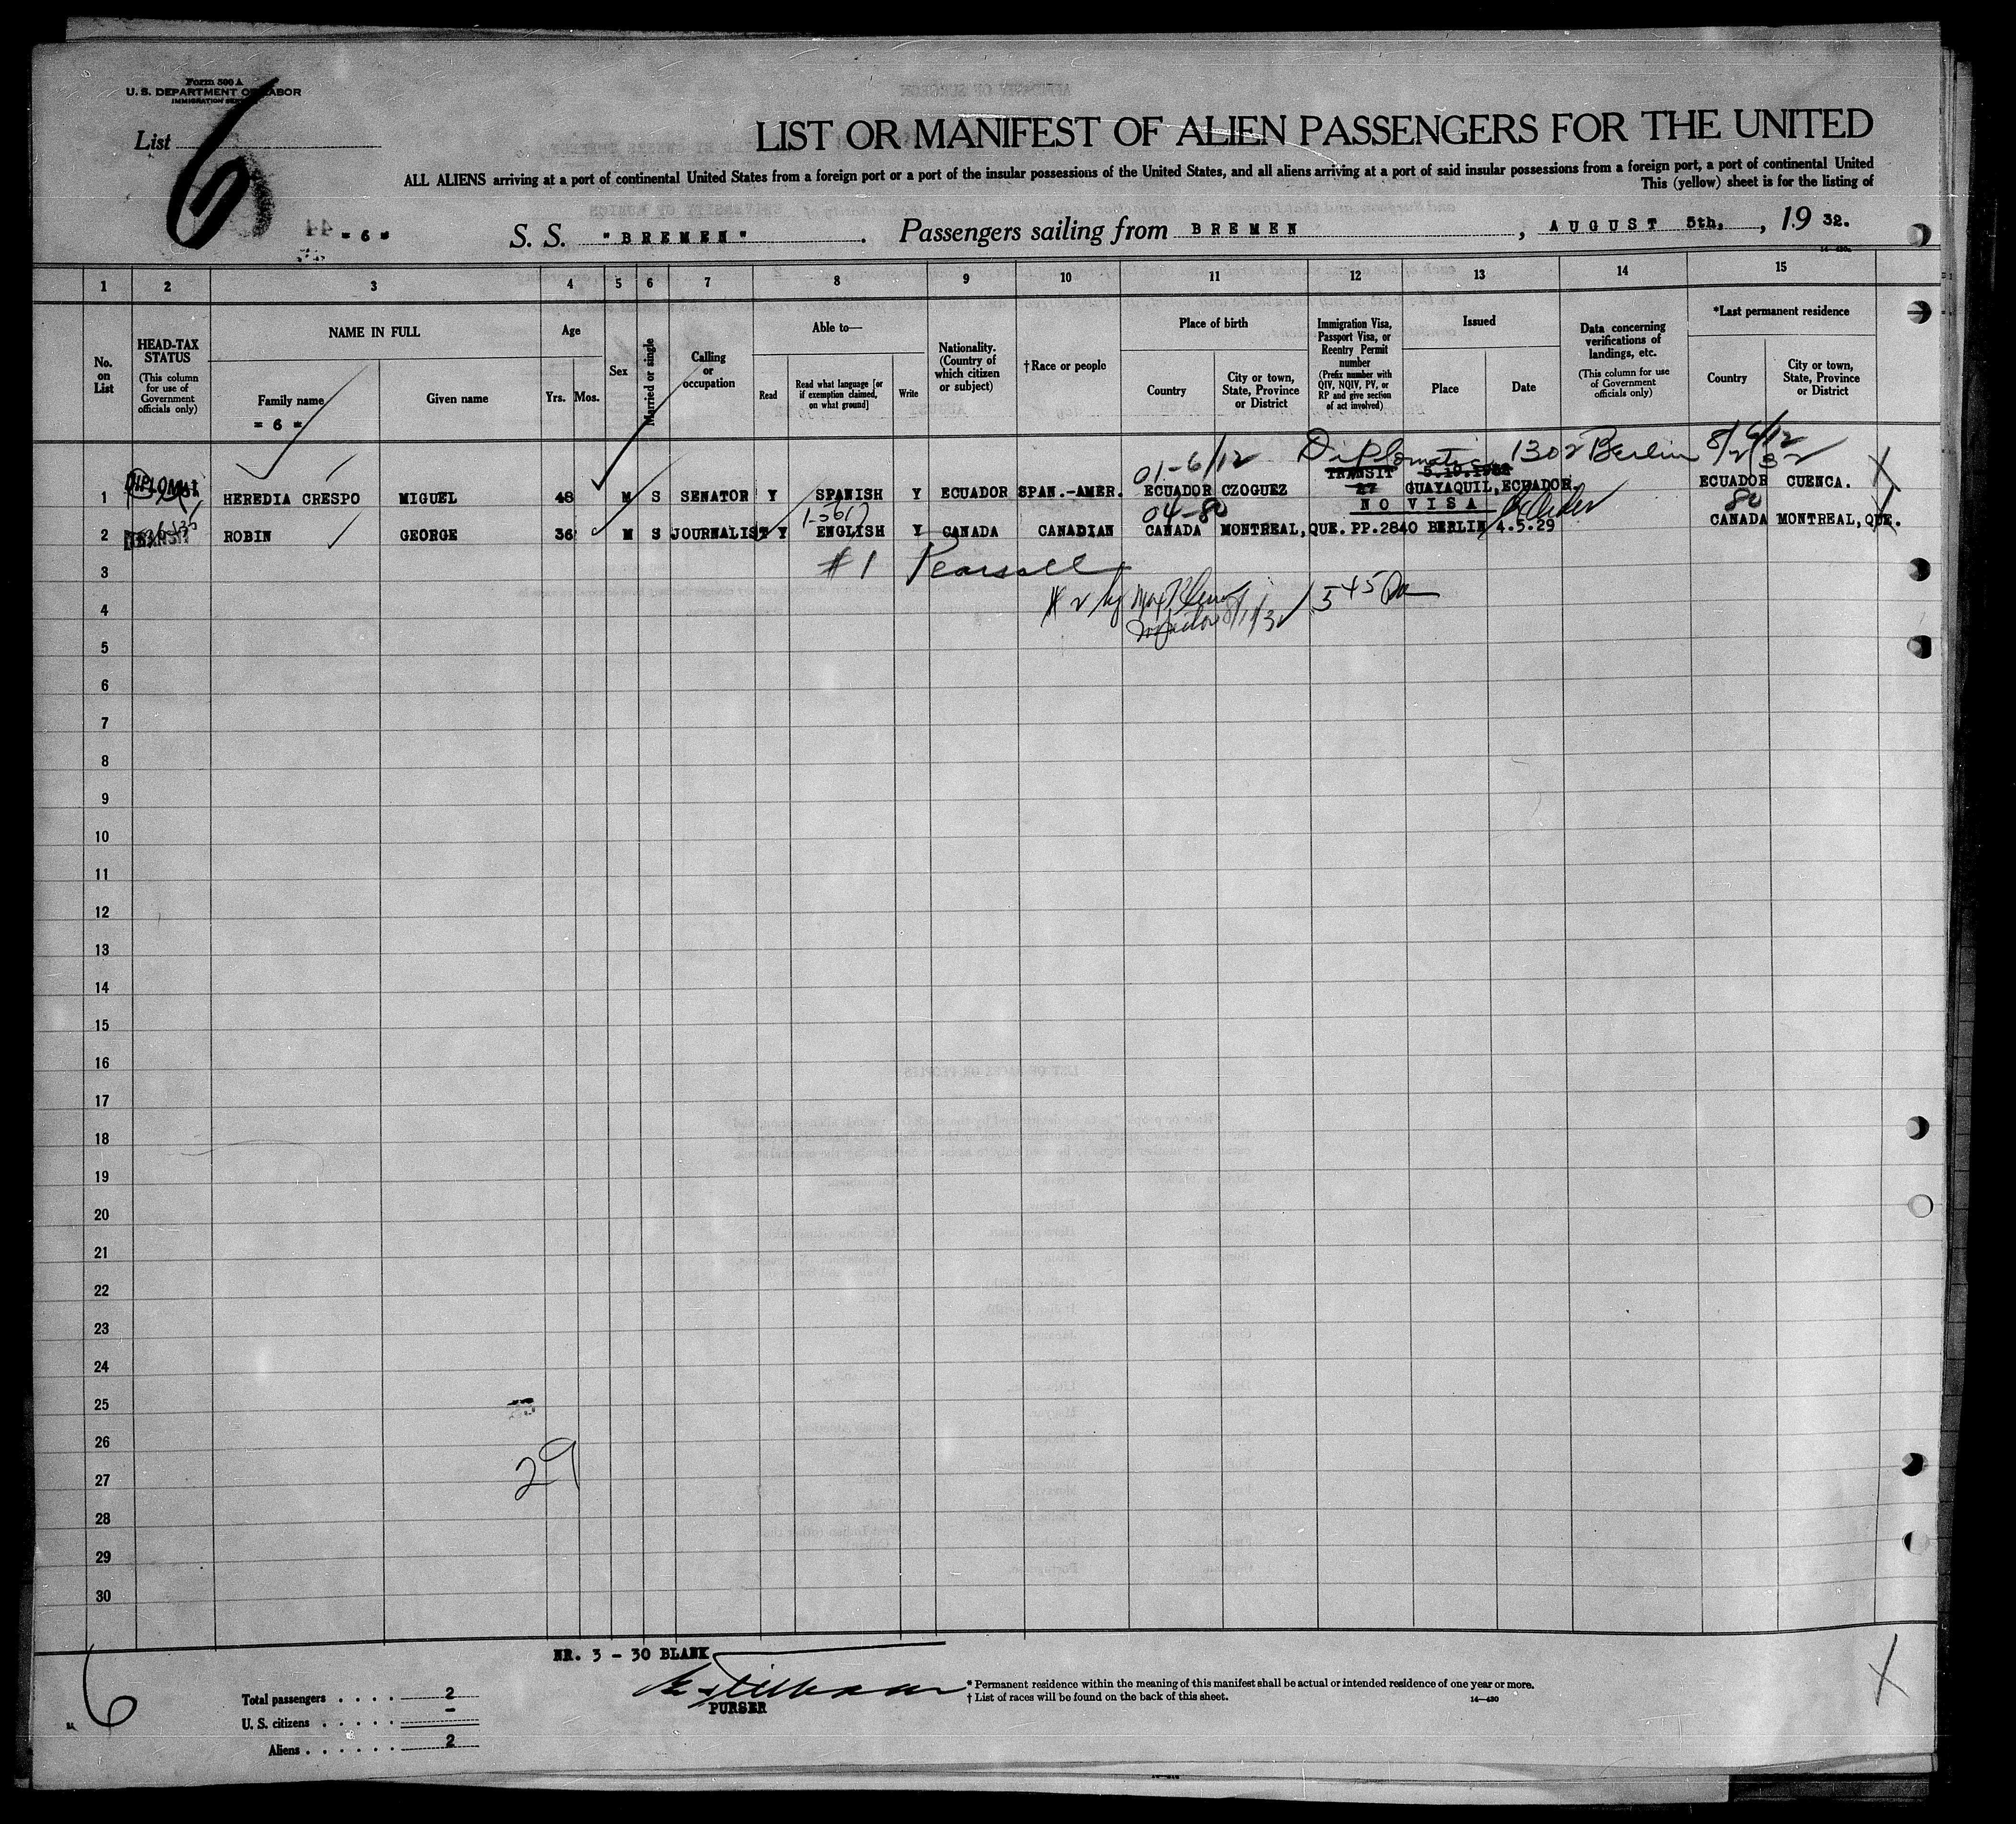 Form 500 A
U. S. DEPARTMENT OF LABOR
IMMIGRATION SERVICE
List 6
LIST OR MANIFEST OF ALIEN PASSENGERS FOR THE UNITED
ALL ALIENS arriving at a port of continental United States from a foreign port or a port of the insular possessions of the United States, and all aliens arriving at a port of said insular possessions from a foreign port, a port of continental United
This (yellow) sheet is for the listing of
= 6 = S. S. "BREMEN". Passengers sailing from BREMEN, AUGUST 5th., 1932.
1 2 3 4 5 6 7 8 9 10 11 12 13 14 15
No. on List
HEAD-TAX STATUS (This column for use of Government officials only)
NAME IN FULL
Family name
= 6 =
Given name
Age
Yrs. Mos.
Sex
Married or single
Calling or occupation
Able to—
Read
Read what language [or if exemption claimed, on what ground]
Write
Nationality. (Country of which citizen or subject)
†Race or people
Place of birth
Country
City or town, State, Province or District
Immigration Visa, Passport Visa, or Reentry Permit number (Prefix number with QIV, NQIV, PV, or RP and give section of act involved)
Issued
Place
Date
Data concerning verifications of landings, etc. (This column for use of Government officials only)
*Last permanent residence
Country
City or town, State, Province or District
01-6/12 Diplomatic 1302 Berlin 8/2/32 6/12
DIPLOMAT TRANSIT 5.10.1932
1 HEREDIA CRESPO MIGUEL 48 M S SENATOR Y SPANISH Y ECUADOR SPAN.-AMER. ECUADOR CZOGUEZ 27 GUAYAQUIL, ECUADOR. ECUADOR CUENCA.
04-80 NO VISA 80
2 ROBIN GEORGE 36 M S JOURNALIST Y ENGLISH Y CANADA CANADIAN CANADA MONTREAL, QUE. PP.2840 BERLIN 4.5.29 CANADA MONTREAL, QUE.
3 #1 Pearsall
4
5
6
7
8
9
10
11
12
13
14
15
16
17
18
19
20
21
22
23
24
25
26
27 29
28
29
30
NR. 3 - 30 BLANK
PURSER
6
Total passengers . . . . 2
U. S. citizens . . . . . -
Aliens . . . . . . 2
* Permanent residence within the meaning of this manifest shall be actual or intended residence of one year or more.
† List of races will be found on the back of this sheet.
14—430